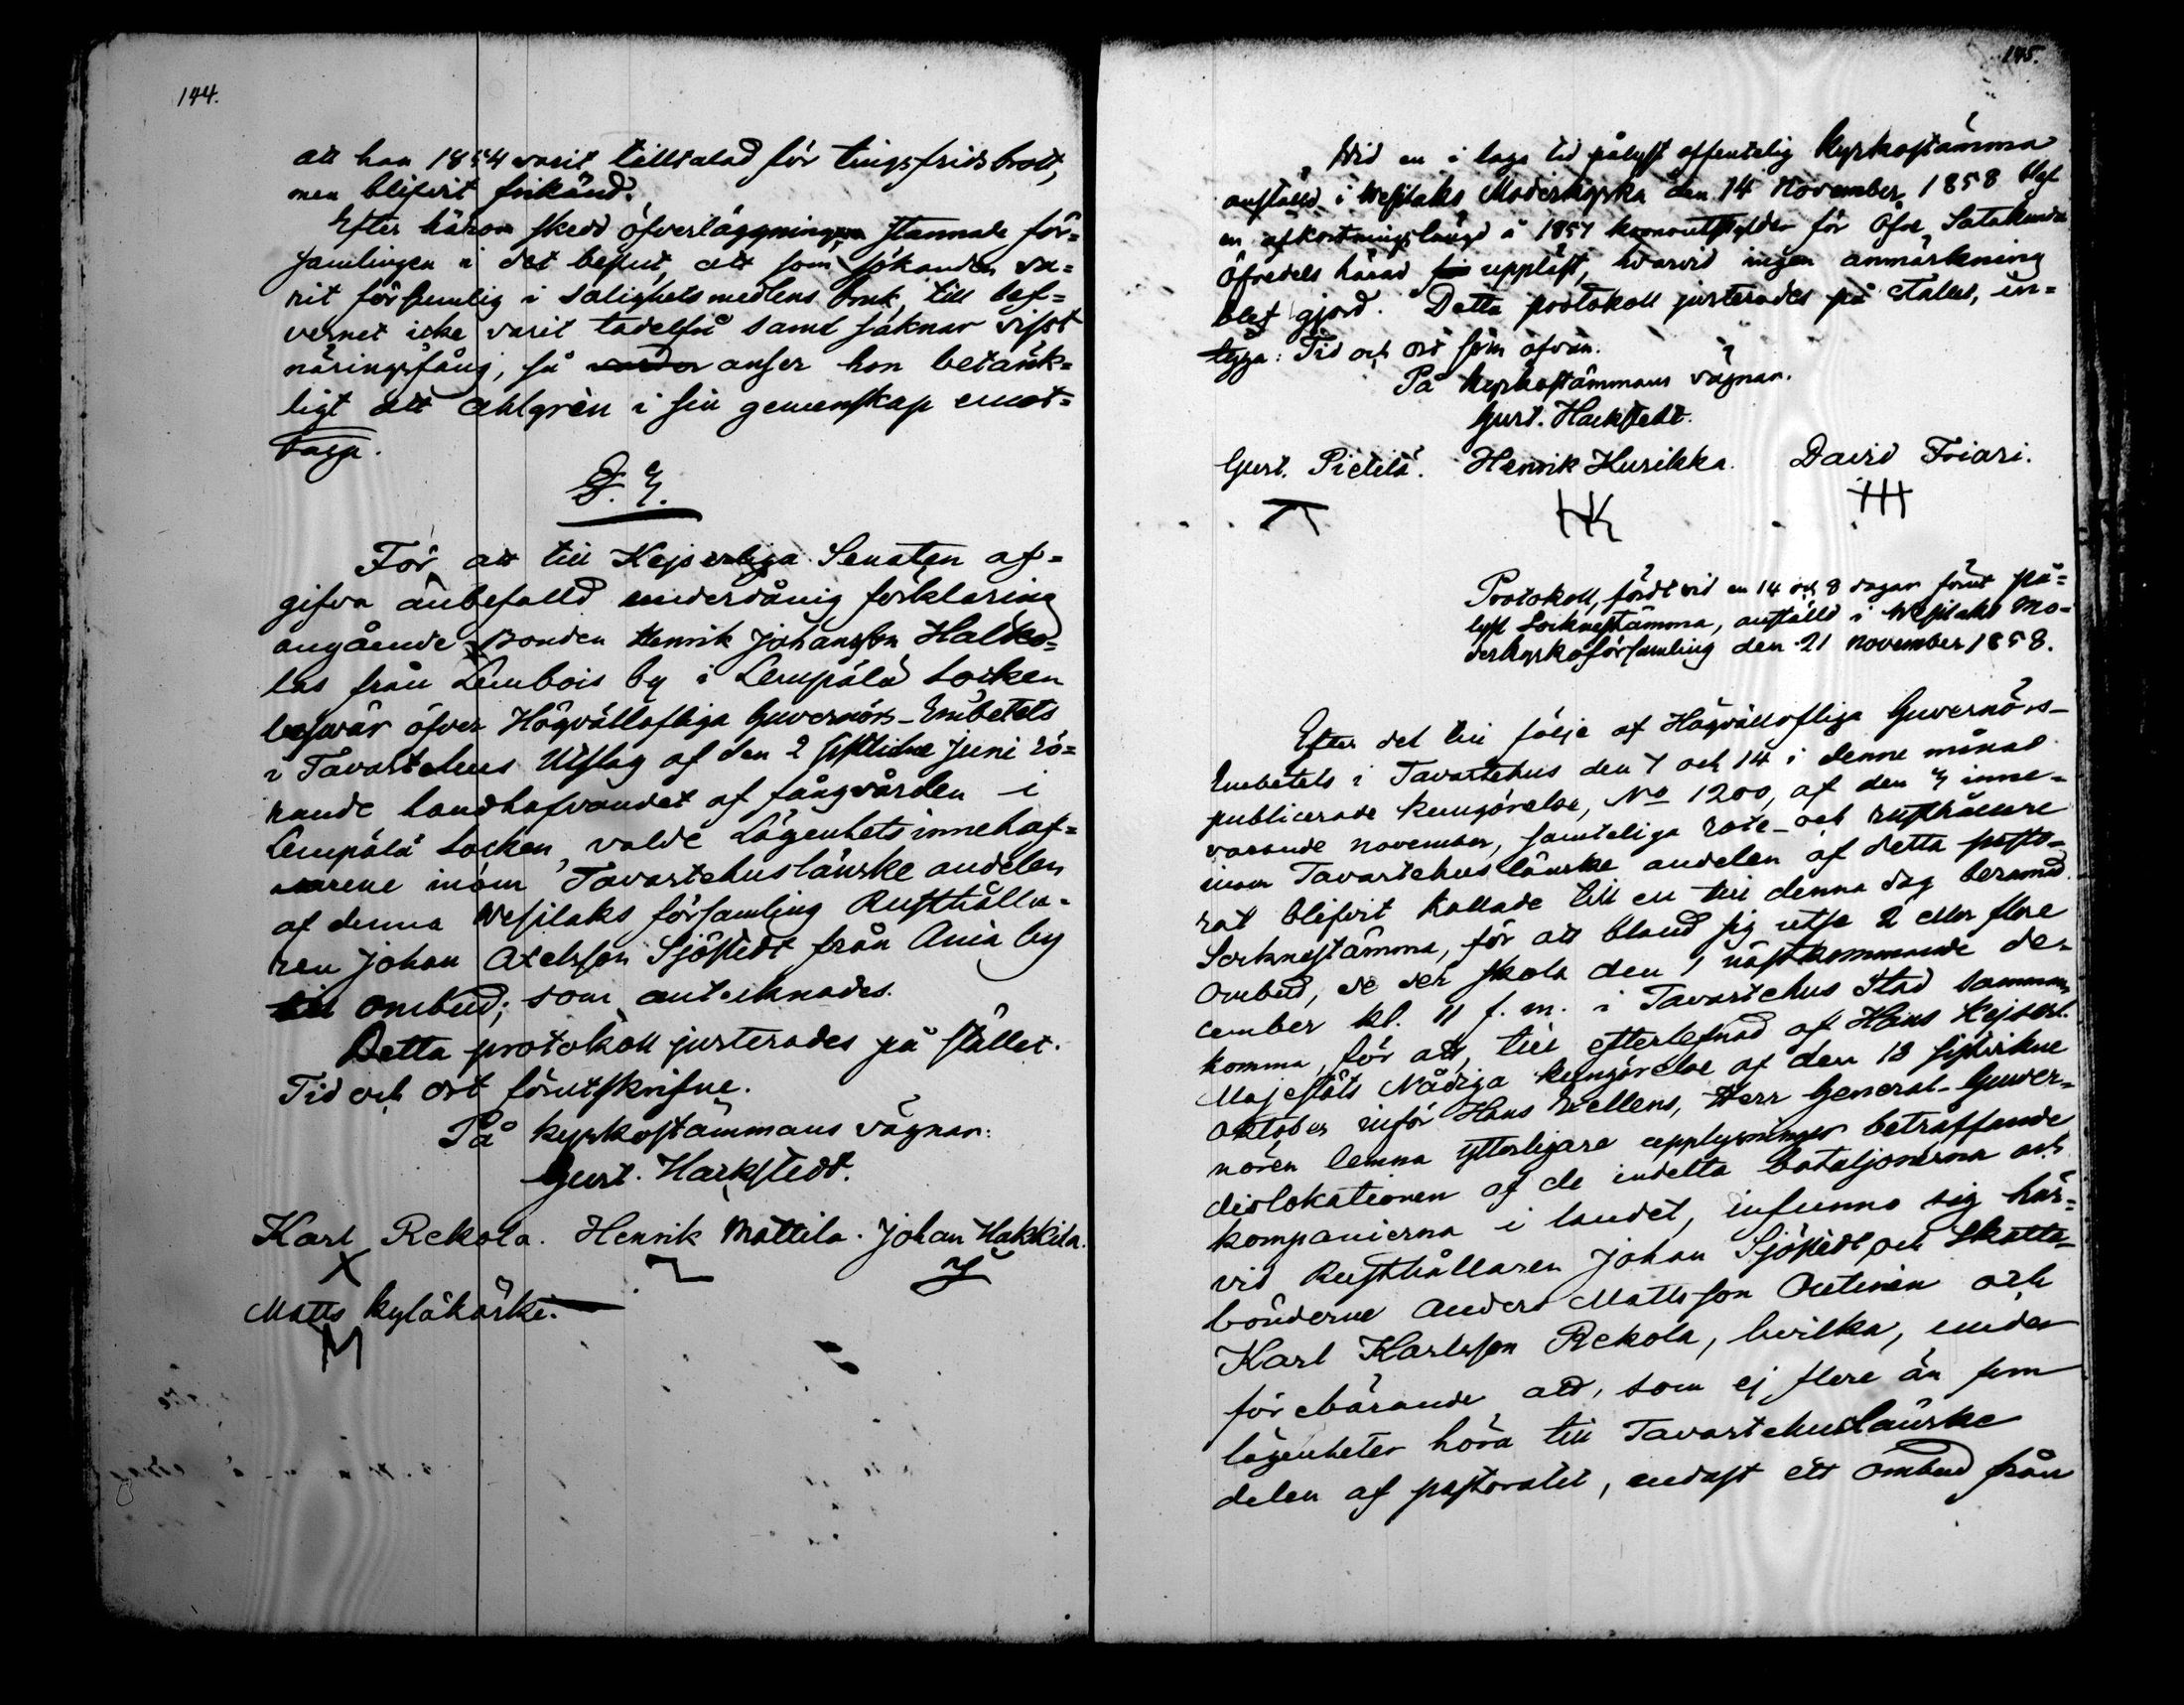 144.
att han 1854 varit tilltalad för tingsfridsbrott,
men blifvit frikänd.
Efter härom skedd öfverläggning stannade för=
samlingen i det beslut, att som sökanden va=
rit försumlig i salighetsmedlens bruk, till lef=
vernet icke varit tadelfri samt saknar visst
näringsfång, så anser hon betänk=
ligt att Ahlgrèn i sin gemenskap emot=
taga.
§. 2.
För att till Kejserliga Senaten af=
gifva anbefalld underdånig förklaring
angående Bonden Henrik Johansson Halko=
las från Lembois by i Lempälä Socken
besvär öfver Högvällofliga Guvernörs-Embetets
i Tavastehus Utslag af den 2 sistlidne Juni rö=
rande handhafvandet af fångvården i
Lempälä Socken, valde Lägenhetsinnehaf=
varene inom Tavastehuslänske andelen
af denna Wesilaks församling Rusthålla=
ren Johan Axelsson Sjöstedt från Ania by
till ombud; som antecknades.
Detta protokoll justerades på stället.
Tid och ort förutskrifne.
På kyrkostämmans vägnar:
Gust. Hackstedt.
Karl Rekola. Henrik Mattila. Johan Hakkila.
Matts kyläkoski.
145.
Wid en i laga tid pålyst offentelig kyrkostämma
anstäld i Wesilaks Moderkyrka den 14 November 1858 blef
en afkortningslängd å 1857 kronoutskylder för Öfre Satakunda
Öfredels härad uppläst, hvarvid ingen anmärkning
blef gjord. Detta protokoll justerades på stället, in=
tyga: Tid och ort som ofvan.
På kyrkostämmans vägnar.
Gust. Hackstedt.
Gust. Pietilä. Henrik Kurikka. David Friari.
HK
Protokoll, fördt vid en 14 och 8 dagar förut på=
lyst Socknestämma, anstäld i Wesilaks Mo=
derkyrkoförsamling den 21 november 1858.
Efter det till följe af Högvällofliga Guvernörs-
Embetets i Tavastehus den 7 och 14 i denne månad
publicerade kungörelse, No 1200, af den 4 inne-
varande november, samteliga rote- och rusthållare
inom Tavastehuslänske andelen af detta pasto-
rat blifvit kallade till en till denna dag beramad
Socknestämma, för att bland sig utse 2 eller flere
Ombud, de der skola den 1 nästkommande de-
cember kl. 11 f. m. i Tavastehus Stad samman
komma, för att, till efterlefnad af Hans Kejserl.
Majestäts Nådiga kungörelse af den 13 sistvikne
Oktober inför Hans Exellens, Herr General-Guver-
nören lemna ytterligare upplysningar beträffande
dislokationen af de indelta bataljonerna och
kompanierna i landet, infunno sig här=
vid Rusthållaren Johan Sjöstedt och Skatte-
bönderne Anders Mattsson Outinen och
Karl Karlsson Rekola, hvilka, under
förebärande att, som ej flere än fem
lägenheter höra till Tavastehuslänske
delen af pastoratet, endast ett ombud från